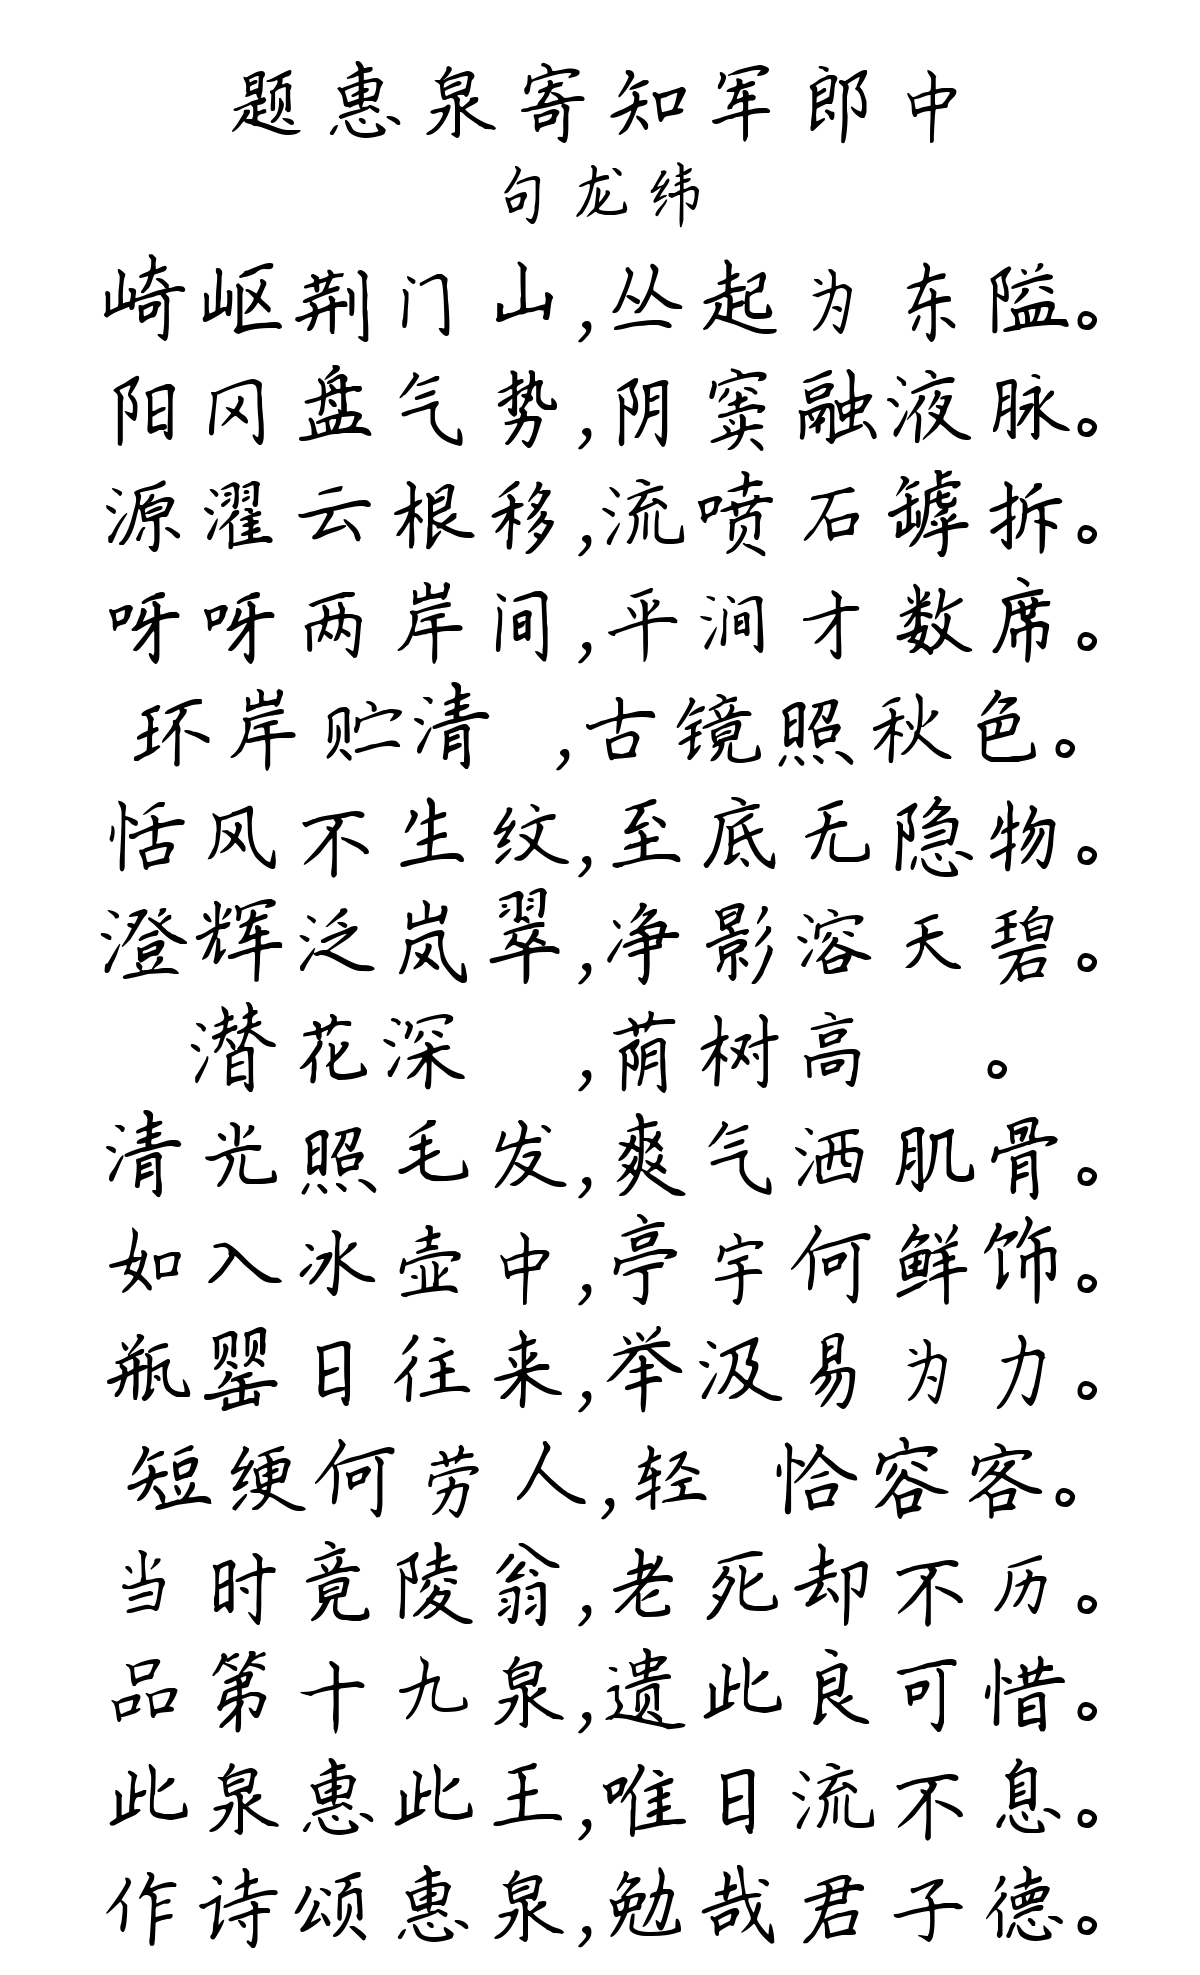 题惠泉寄知军郎中
句龙纬
崎岖荆门山,丛起为东隘。
阳冈盘气势,阴窦融液脉。
源濯云根移,流喷石罅拆。
呀呀两岸间,平涧才数席。
环岸贮清 ,古镜照秋色。
恬风不生纹,至底无隐物。
澄辉泛岚翠,净影溶天碧。
潜花深 ,荫树高 。
清光照毛发,爽气洒肌骨。
如入冰壶中,亭宇何鲜饰。
瓶罂日往来,举汲易为力。
短绠何劳人,轻 恰容客。
当时竟陵翁,老死却不历。
品第十九泉,遗此良可惜。
此泉惠此王,唯日流不息。
作诗颂惠泉,勉哉君子德。